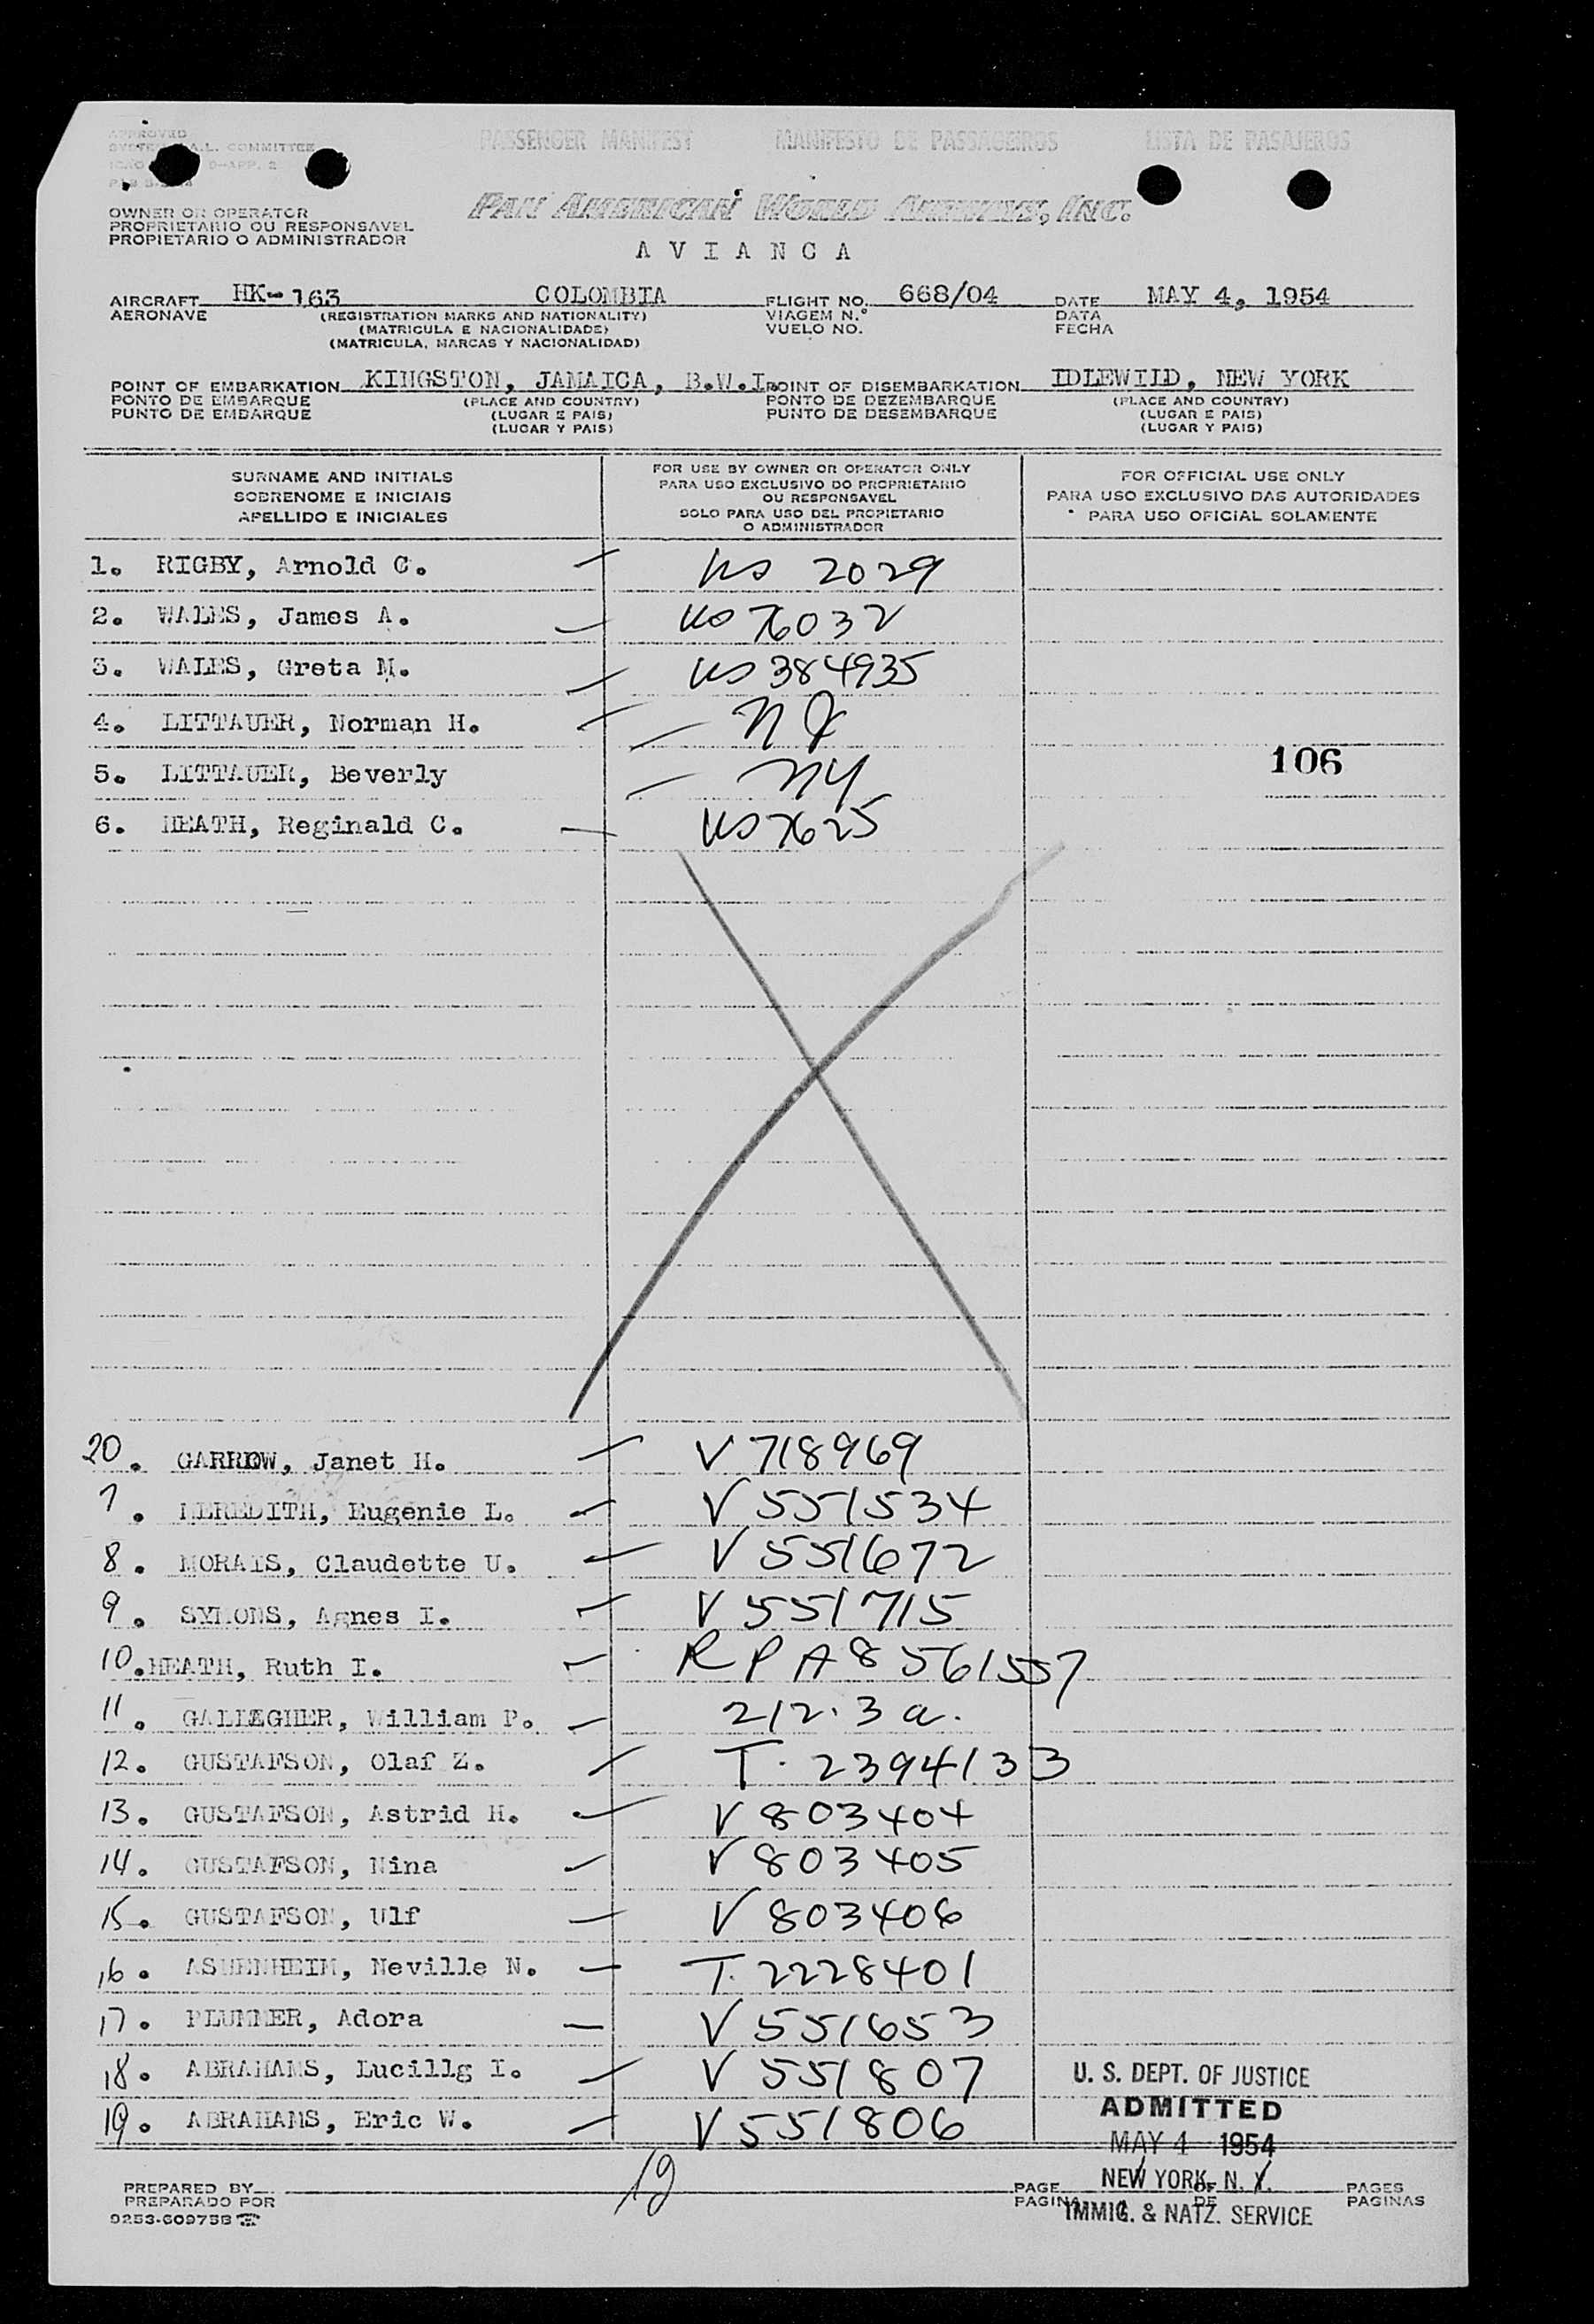 APPROVED
A.L. COMMITTEE
PASSENGER MANIFEST MANIFESTO DE PASSAGEIROS LISTA DE PASAJEROS
OWNER OR OPERATOR
PROPRIETARIO OU RESPONSAVEL
PROPIETARIO O ADMINISTRADOR
PAN AMERICAN WORLD AIRWAYS, INC.
A V I A N C A
AIRCRAFT HK-163 COLOMBIA FLIGHT NO. 668/04 DATE MAY 4, 1954
AERONAVE (REGISTRATION MARKS AND NATIONALITY) VIAGEM N.° DATA
(MATRICULA E NACIONALIDADE) VUELO NO. FECHA
(MATRICULA, MARCAS Y NACIONALIDAD)
POINT OF EMBARKATION KINGSTON, JAMAICA, B.W.I. POINT OF DISEMBARKATION IDLEWILD, NEW YORK
PONTO DE EMBARQUE (PLACE AND COUNTRY) PONTO DE DEZEMBARQUE (PLACE AND COUNTRY)
PUNTO DE EMBARQUE (LUGAR E PAIS) PUNTO DE DESEMBARQUE (LUGAR E PAIS)
(LUGAR Y PAIS) (LUGAR Y PAIS)
SURNAME AND INITIALS
SOBRENOME E INICIAIS
APELLIDO E INICIALES
FOR USE BY OWNER OR OPERATOR ONLY
PARA USO EXCLUSIVO DO PROPRIETARIO
OU RESPONSAVEL
SOLO PARA USO DEL PROPIETARIO
O ADMINISTRADOR
FOR OFFICIAL USE ONLY
PARA USO EXCLUSIVO DAS AUTORIDADES
PARA USO OFICIAL SOLAMENTE
1. RIGBY, Arnold C. US 2029
2. WALES, James A. US 76032
3. WALES, Greta M. US 384935
4. LITTAUER, Norman H. NY
5. LITTAUER, Beverly NY
106
6. HEATH, Reginald C. US 7625
20. GARROW, Janet H. V 718969
7. MEREDITH, Eugenie L. V 551534
8. MORAIS, Claudette U. V 551672
9. SYMONS, Agnes I. V 551715
10. HEATH, Ruth I. RP A8561557
11. GALLAGHER, William P. 212.3 a.
12. GUSTAFSON, Olaf Z. T. 2394133
13. GUSTAFSON, Astrid H. V 803404
14. GUSTAFSON, Nina V 803405
15. GUSTAFSON, Ulf V 803406
16. ASHENHEIM, Neville N. T. 2228401
17. PLUMMER, Adora V 551653
18. ABRAHAMS, Lucillg I. V 551807
19. ABRAHAMS, Eric W. V 551806
U. S. DEPT. OF JUSTICE
ADMITTED
MAY 4 1954
NEW YORK, N. Y.
IMMIG. & NATZ. SERVICE
19
PREPARED BY PAGE OF PAGES
PREPARADO POR PAGINA DE PAGINAS
9253-609758